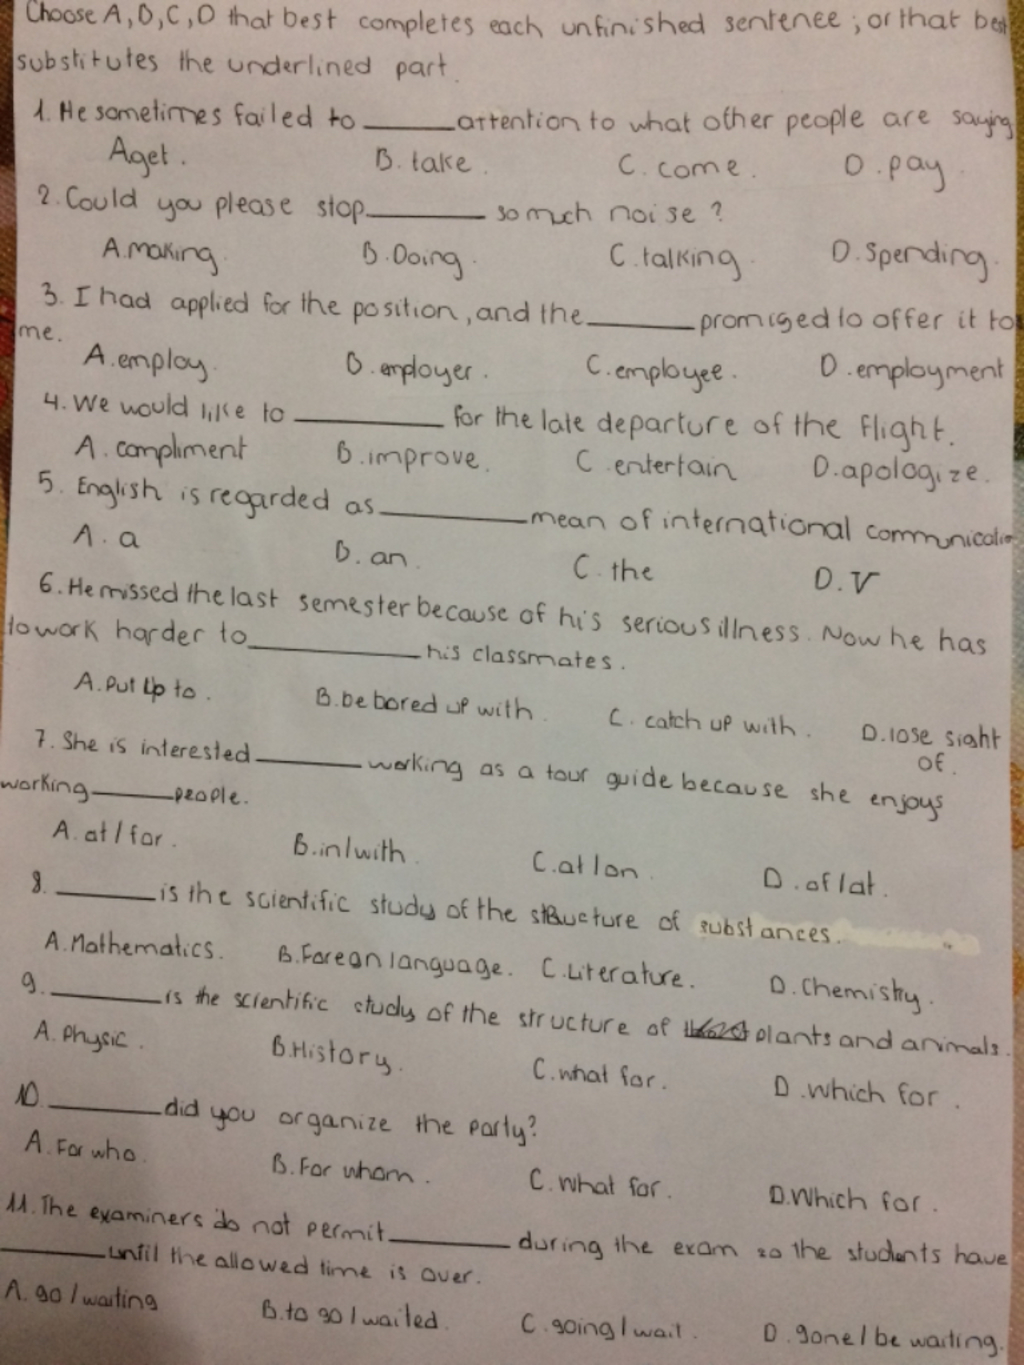 Choose A, B, C, D that best completes each unfinished sentence, or that best
substitutes the underlined part.
1. He sometimes failed to ______ attention to what other people are saying
A get. B. take. C. come. D. pay.
2. Could you please stop ______ so much noise?
A. making. B. Doing. C. talking. D. Spending.
3. I had applied for the position, and the ______ promised to offer it to
me.
A. employ. B. employer. C. employee. D. employment
4. We would like to ______ for the late departure of the flight.
A. compliment B. improve. C. entertain D. apologize.
5. English is regarded as ______ mean of international communication
A. a B. an. C. the D. V
6. He missed the last semester because of his serious illness. Now he has
to work harder to ______ his classmates.
A. put up to. B. be bored up with. C. catch up with. D. lose sight
of.
7. She is interested ______ working as a tour guide because she enjoys
working ______ people.
A. at / for. B. in / with. C. at / on. D. of / at.
8. ______ is the scientific study of the structure of substances.
A. Mathematics. B. Forean language. C. Literature. D. Chemistry.
9. ______ is the scientific study of the structure of plants and animals.
A. Physic. B. History. C. what for. D. Which for.
10. ______ did you organize the party?
A. For who. B. For whom. C. What for. D. Which for.
11. The examiners do not permit ______ during the exam so the students have
______ until the allowed time is over.
A. go / waiting B. to go / waited. C. going / wait. D. gone / be waiting.